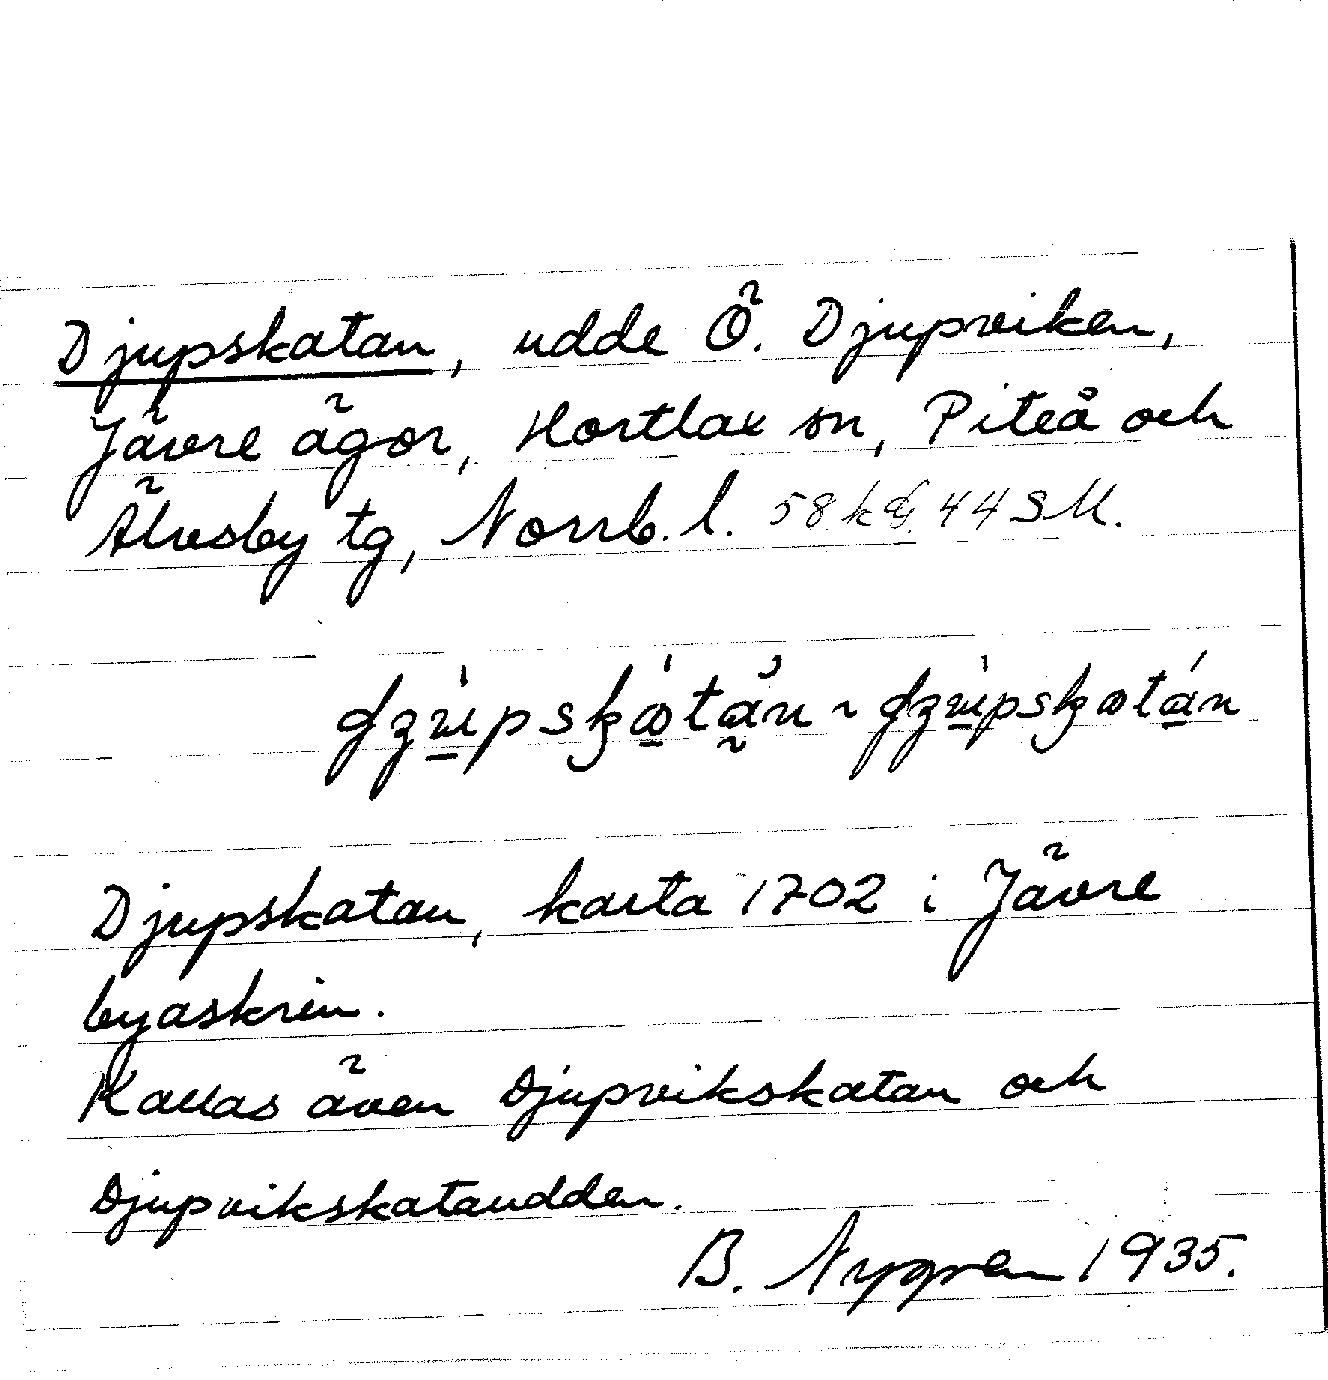 Djupskatan, udde Ö. Djupviken,
Jävre ägor, Hortlax sn, Piteå och
Älvsby tg, Norrb. l. 58 44 SM.
Djupskatan, karta 1702 i Jävre
byaskrin.
Kallas även Djupvikskatan och
Djupvikskatanudden.
B. Nygren 1935.